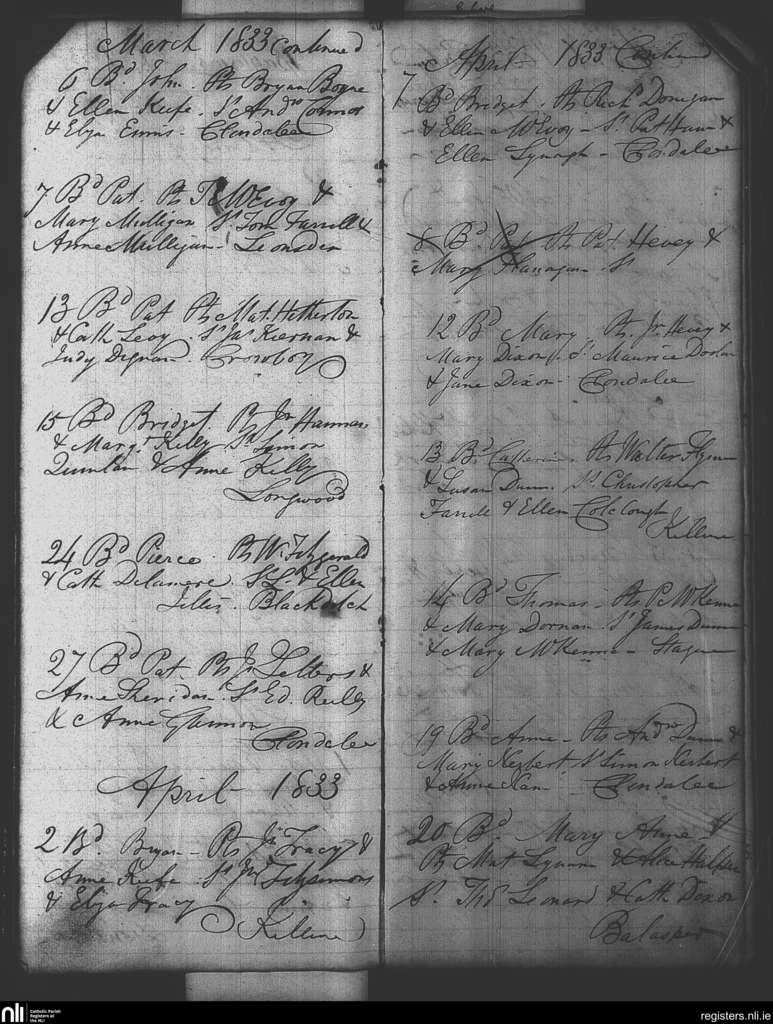 March 1833 Continued
6 Bd. John. Ps Bryan Boyne
& Ellen Keefe. Ss Andw Connor
& Eliza Ennis - Clondalee
7 Bd Pat. Ps McEvoy &
Mary Mulligan Ss Tom Farrell &
Anne Mulligan -
13 Bd Pat Ps Mat. Hetherton
& Cath Levy. Ss Jas Kiernan &
Judy Dignan Crowboy
15 Bd Bridget. Ps Jn Hannan
& Margt Kelly Ss Simon
Quinlan & Anne Kelly
Longwood
24 Bd Pierce. Ps Wm Fitzgerald
& Cath Delamere Ss L. & Ellen
Blackditch
27 Bd Pat. Ps Jn Letters &
Anne Sheridan. Ss Ed. Reilly
& Anne Glennon
Clondalee
April 1833
2 Bd. Bryan - Ps Jn Tracy &
Anne Keefe. Ss Jn Fitzsimons
& Eliza Tracy
Killine
April - 1833 Continued
7 Bd Bridget. Ps Richd Donegan
& Ellen McEvoy - Ss Pat &
Ellen - Clondalee
8 Bd. Pat Ps Pat Hevey &
Mary Flanagan Ss
12 Bd Mary Ps Jn Hevey &
Mary Dixon. Ss Maurice Doolan
& Jane Dixon - Clondalee
13 Bd Catherine. Ps Walter Flynn
& Susan Dunn. Ss Christopher
Farrell & Ellen Colclough
Killine
14 Bd Thomas - Ps P McKenna
& Mary Dornan. Ss James Dunn
& Mary McKenna -
19 Bd Anne - Ps Andw Dunn &
Mary Herbert Ss Simon Herbert
& Anne - Clondalee
20 Bd. Mary Anne &
Ps Mat Lynam & Alice
Ss. Thos Leonard & Cath Dixon
nli
Catholic Parish
Registers at
the NLI
registers.nli.ie